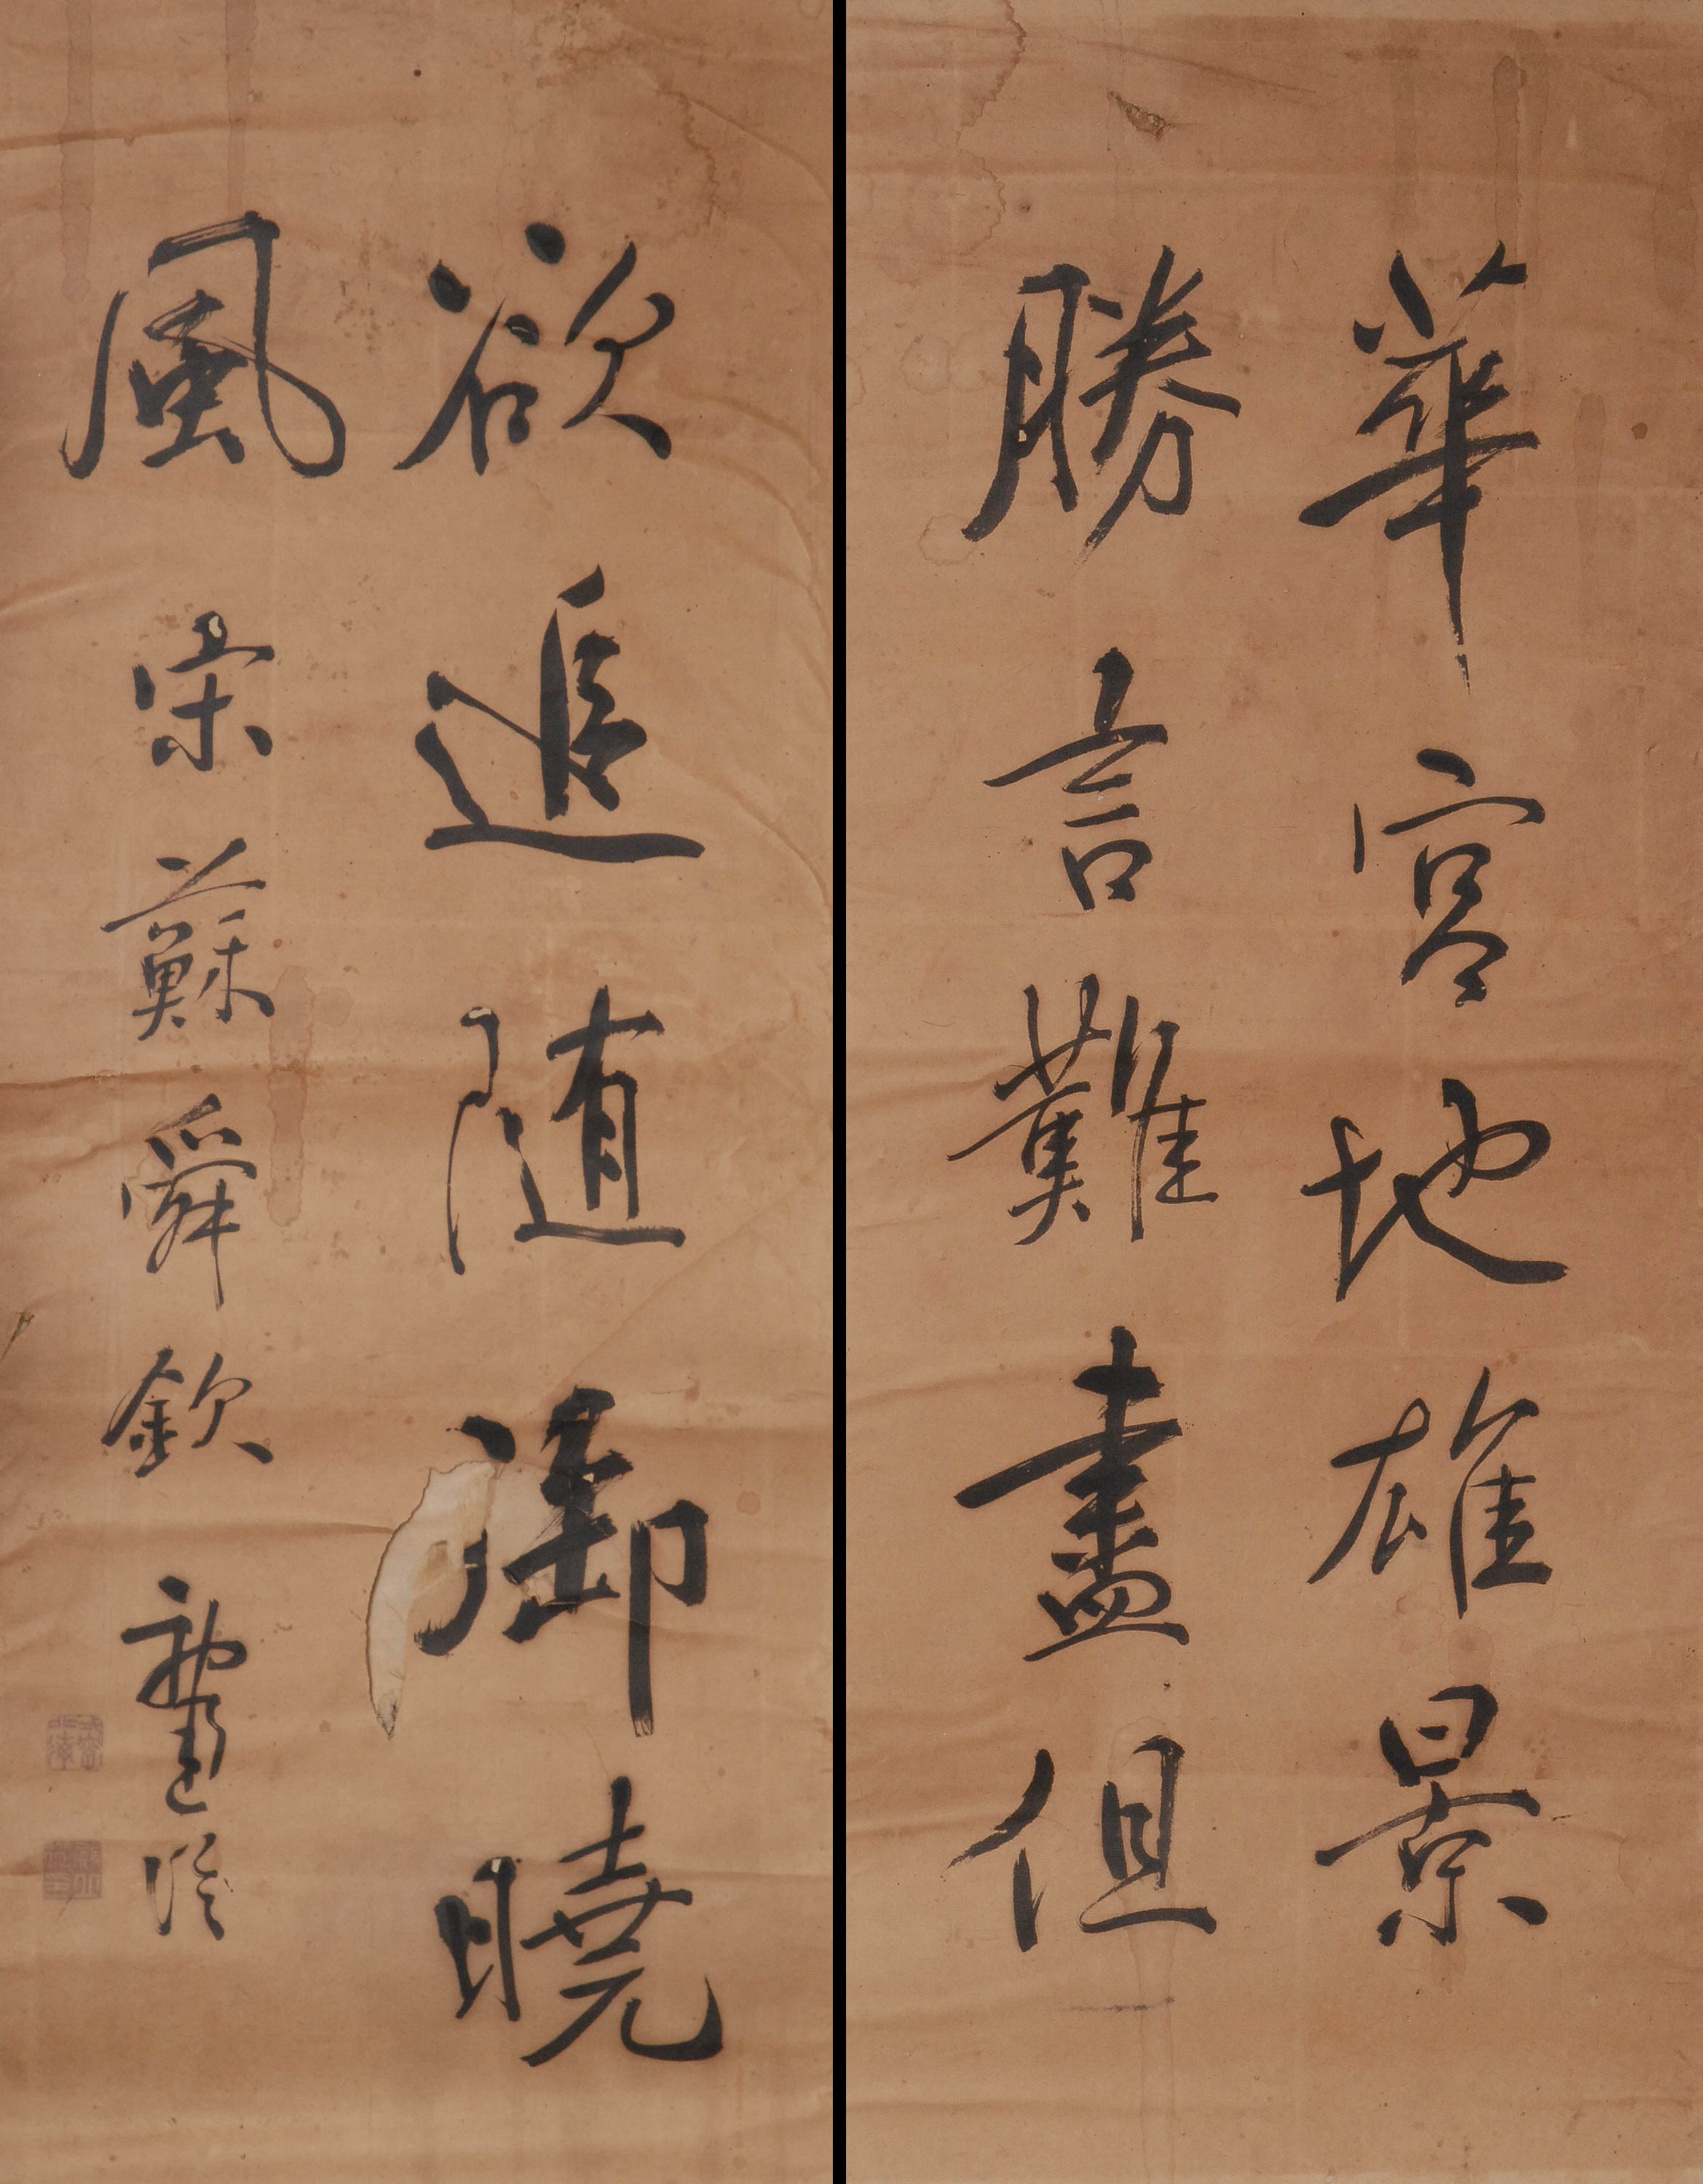 華宮地雄景
勝言難盡但
欲追随御曉
風 宋蘇舜欽